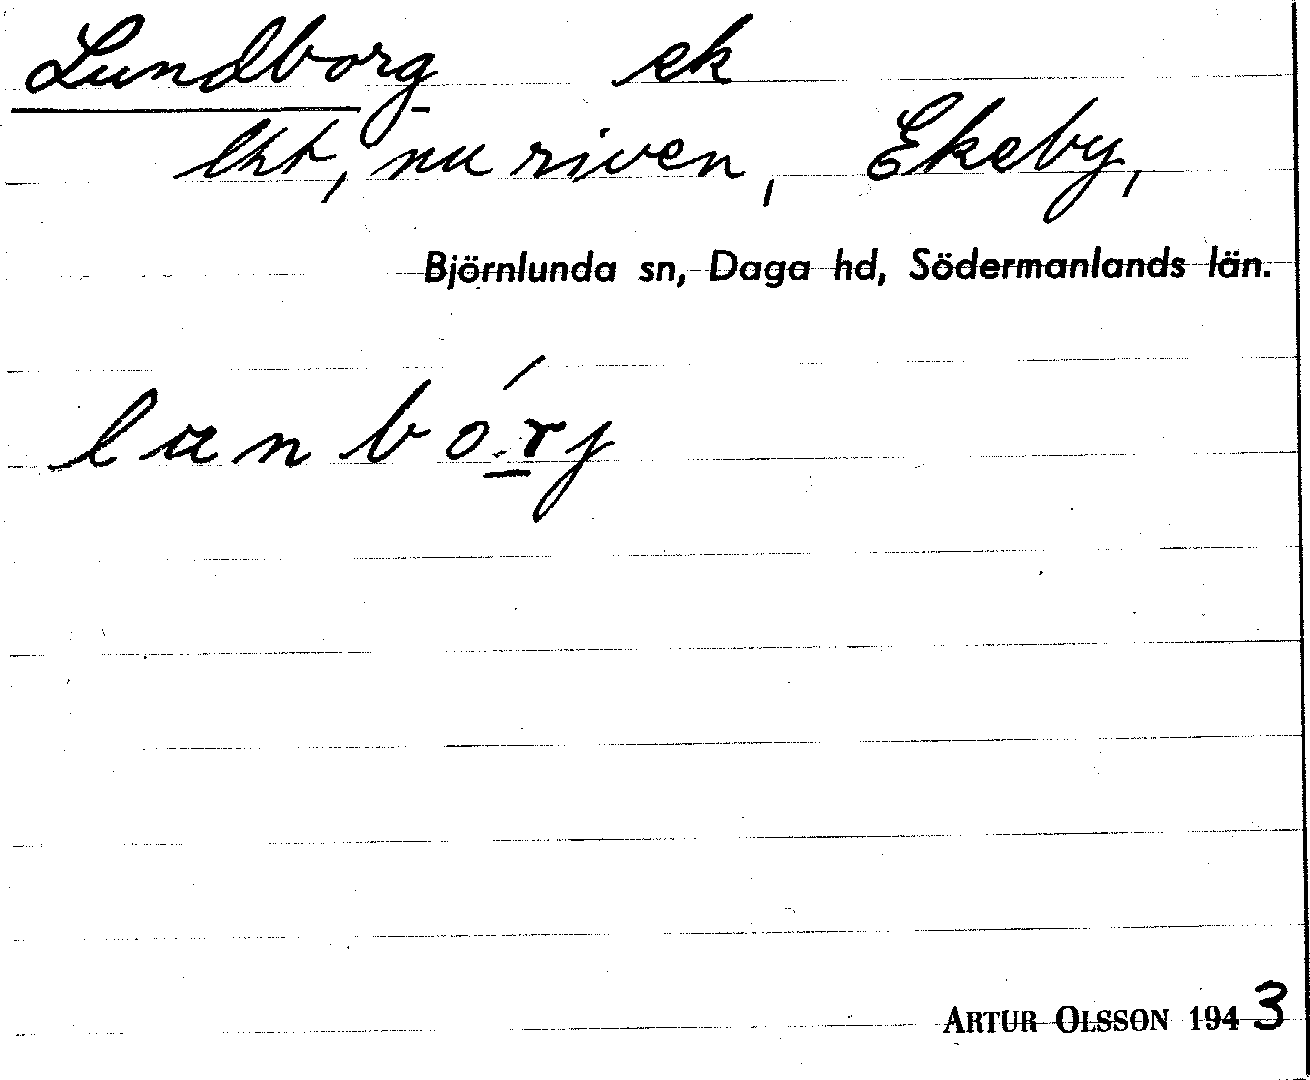 Lundborg ek
lht, nu riven, Ekeby,
Björnlunda sn, Daga hd, Södermanlands län.
ARTUR OLSSON 1943